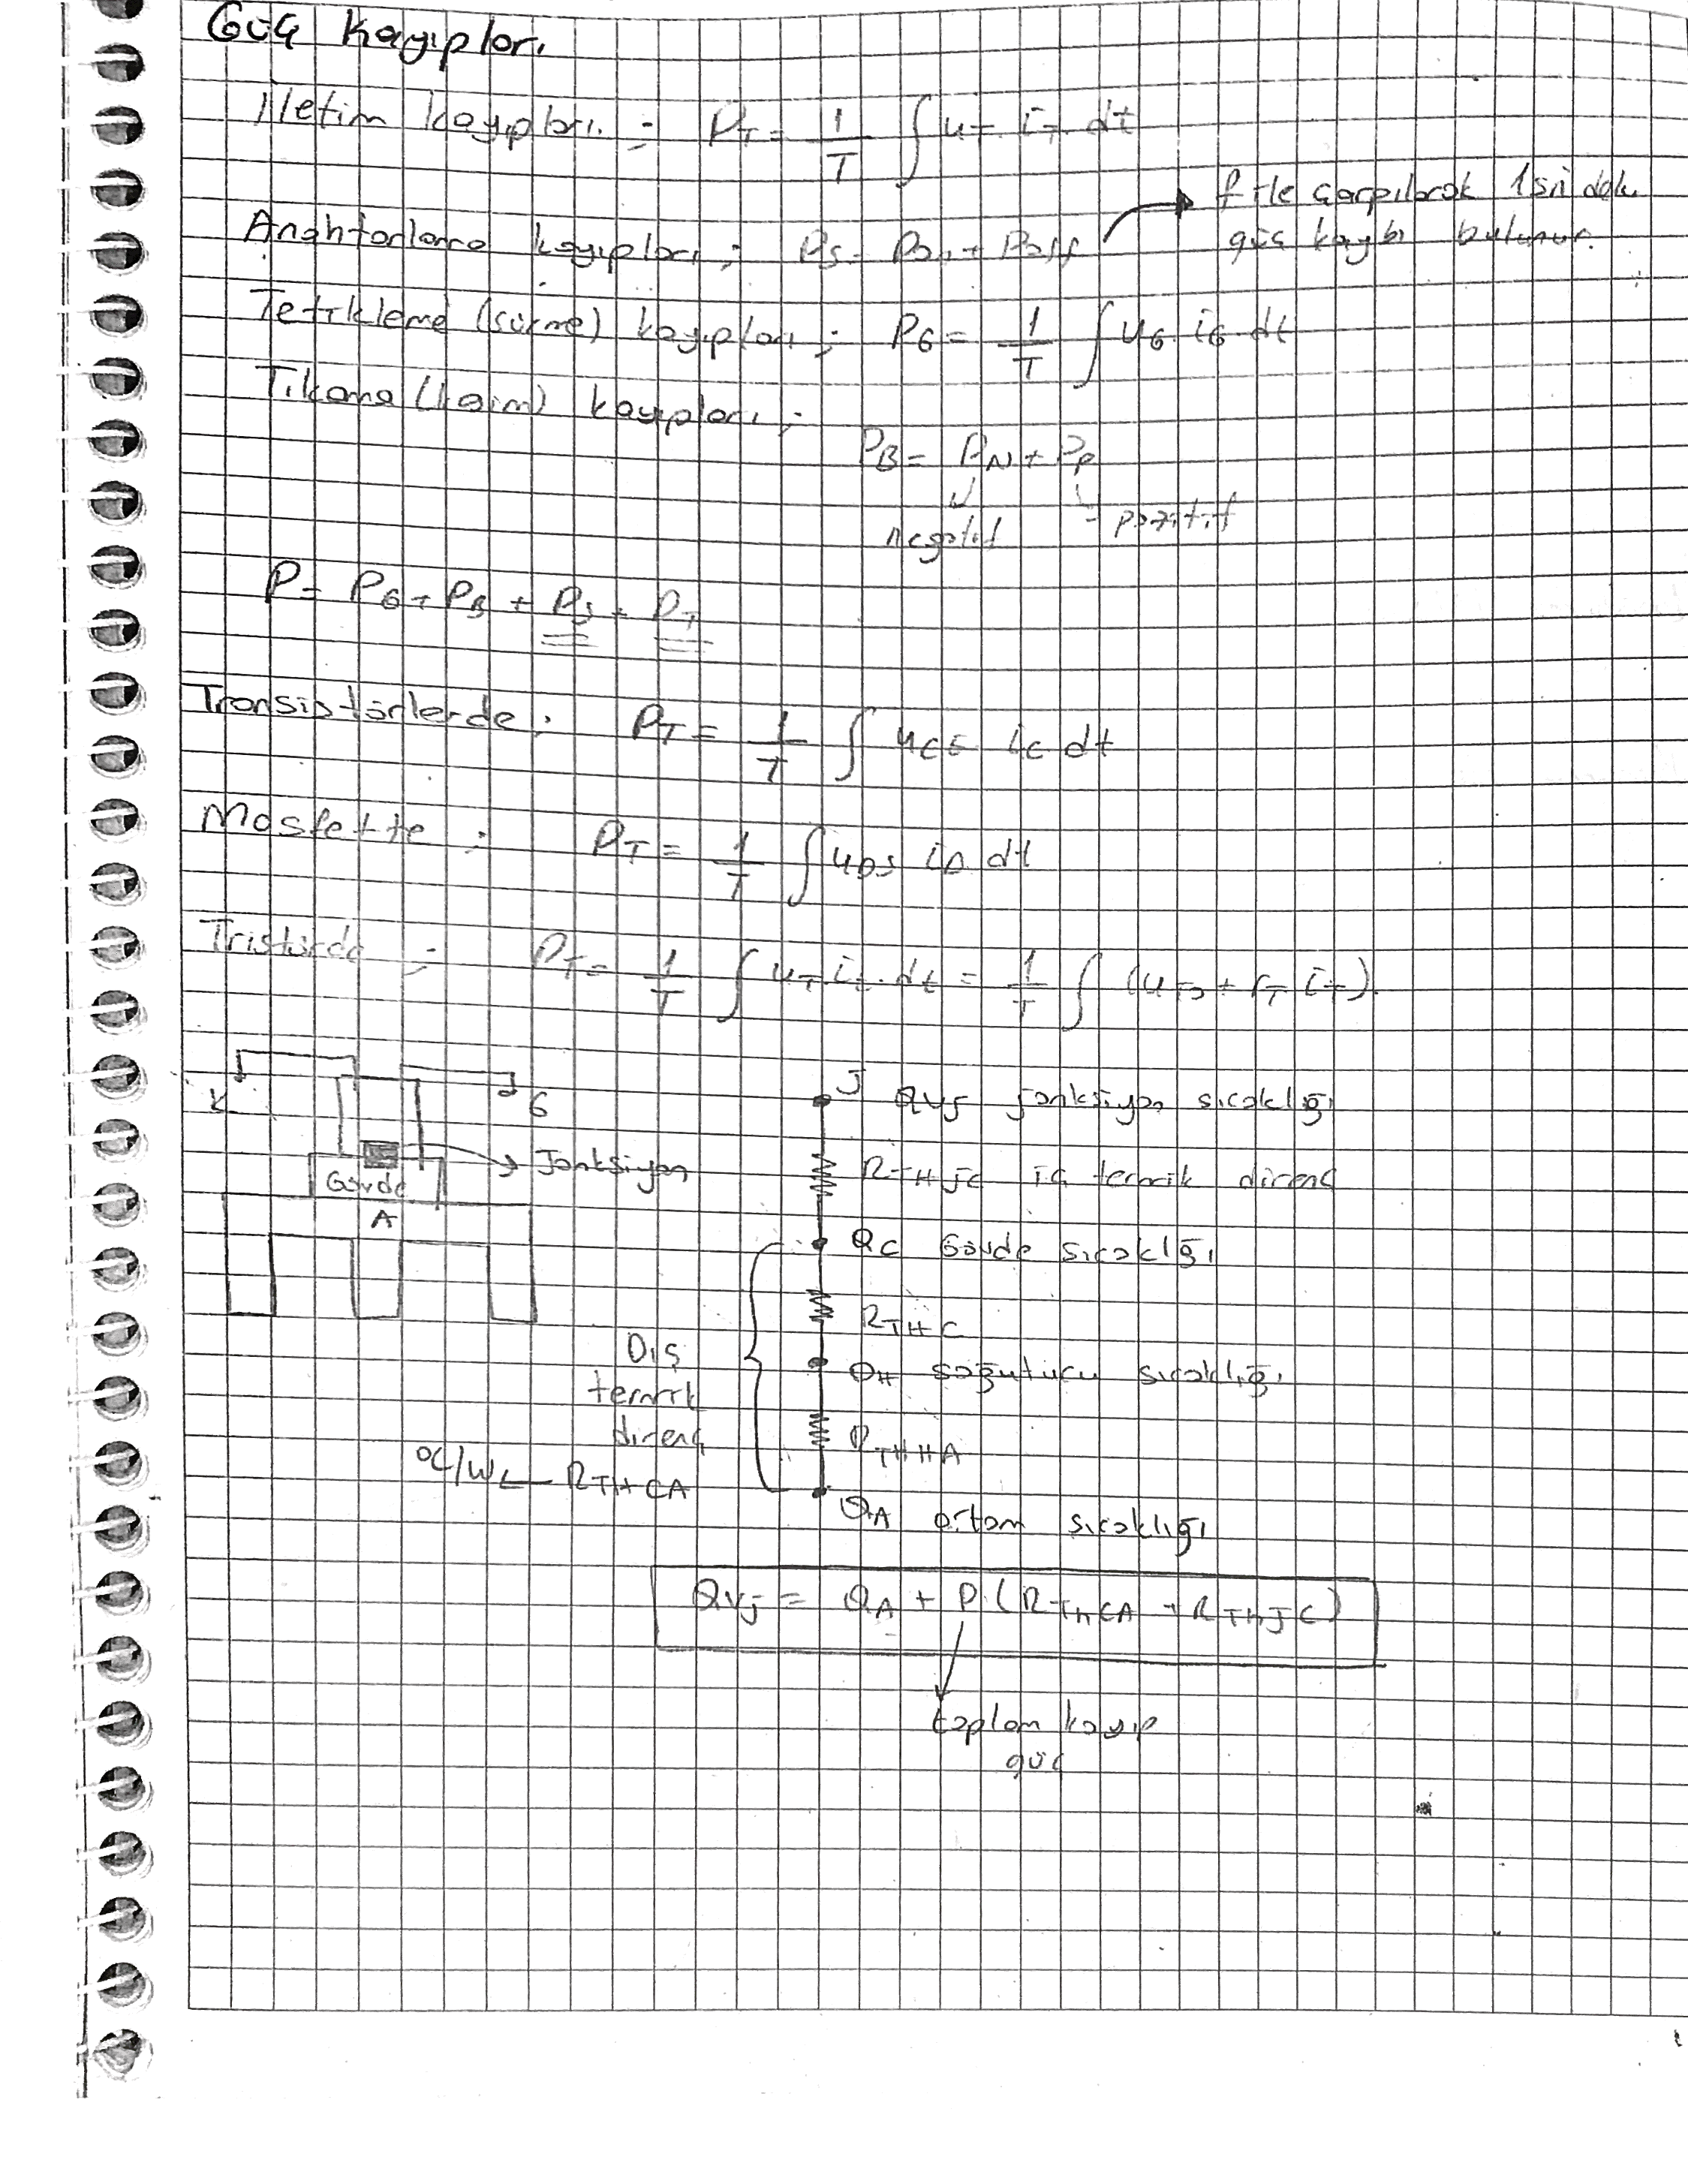 Güç Kayıpları
İletim kayıpları ; P_T = 1/T ∫ u_T i_T dt
Anahtarlama kayıpları ; P_S = P_on + P_off → f ile çarpılarak 1 sn'deki
güç kaybı bulunur.
Tetikleme (sürme) kayıpları ; P_G = 1/T ∫ u_G i_G dt
Tıkama (kesim) kayıpları ;
P_B = P_N + P_P
negatif pozitif
P = P_G + P_B + P_S + P_T
Transistörlerde ; P_T = 1/T ∫ u_CE i_C dt
Mosfette ; P_T = 1/T ∫ u_DS i_D dt
Tristörde ; P_T = 1/T ∫ u_T i_t . dt = 1/T ∫ (u_TO + r_T i_T).
K G
Jonksiyon
Gövde
A
J
Q_VJ jonksiyon sıcaklığı
R_THJC iç termik direnç
Q_C Gövde sıcaklığı
R_THC
Q_H soğutucu sıcaklığı
R_THHA
Q_A ortam sıcaklığı
Dış
termik
direnç
°C/W ← R_THCA
Q_VJ = Q_A + P.(R_ThCA + R_ThJC)
toplam kayıp
güç